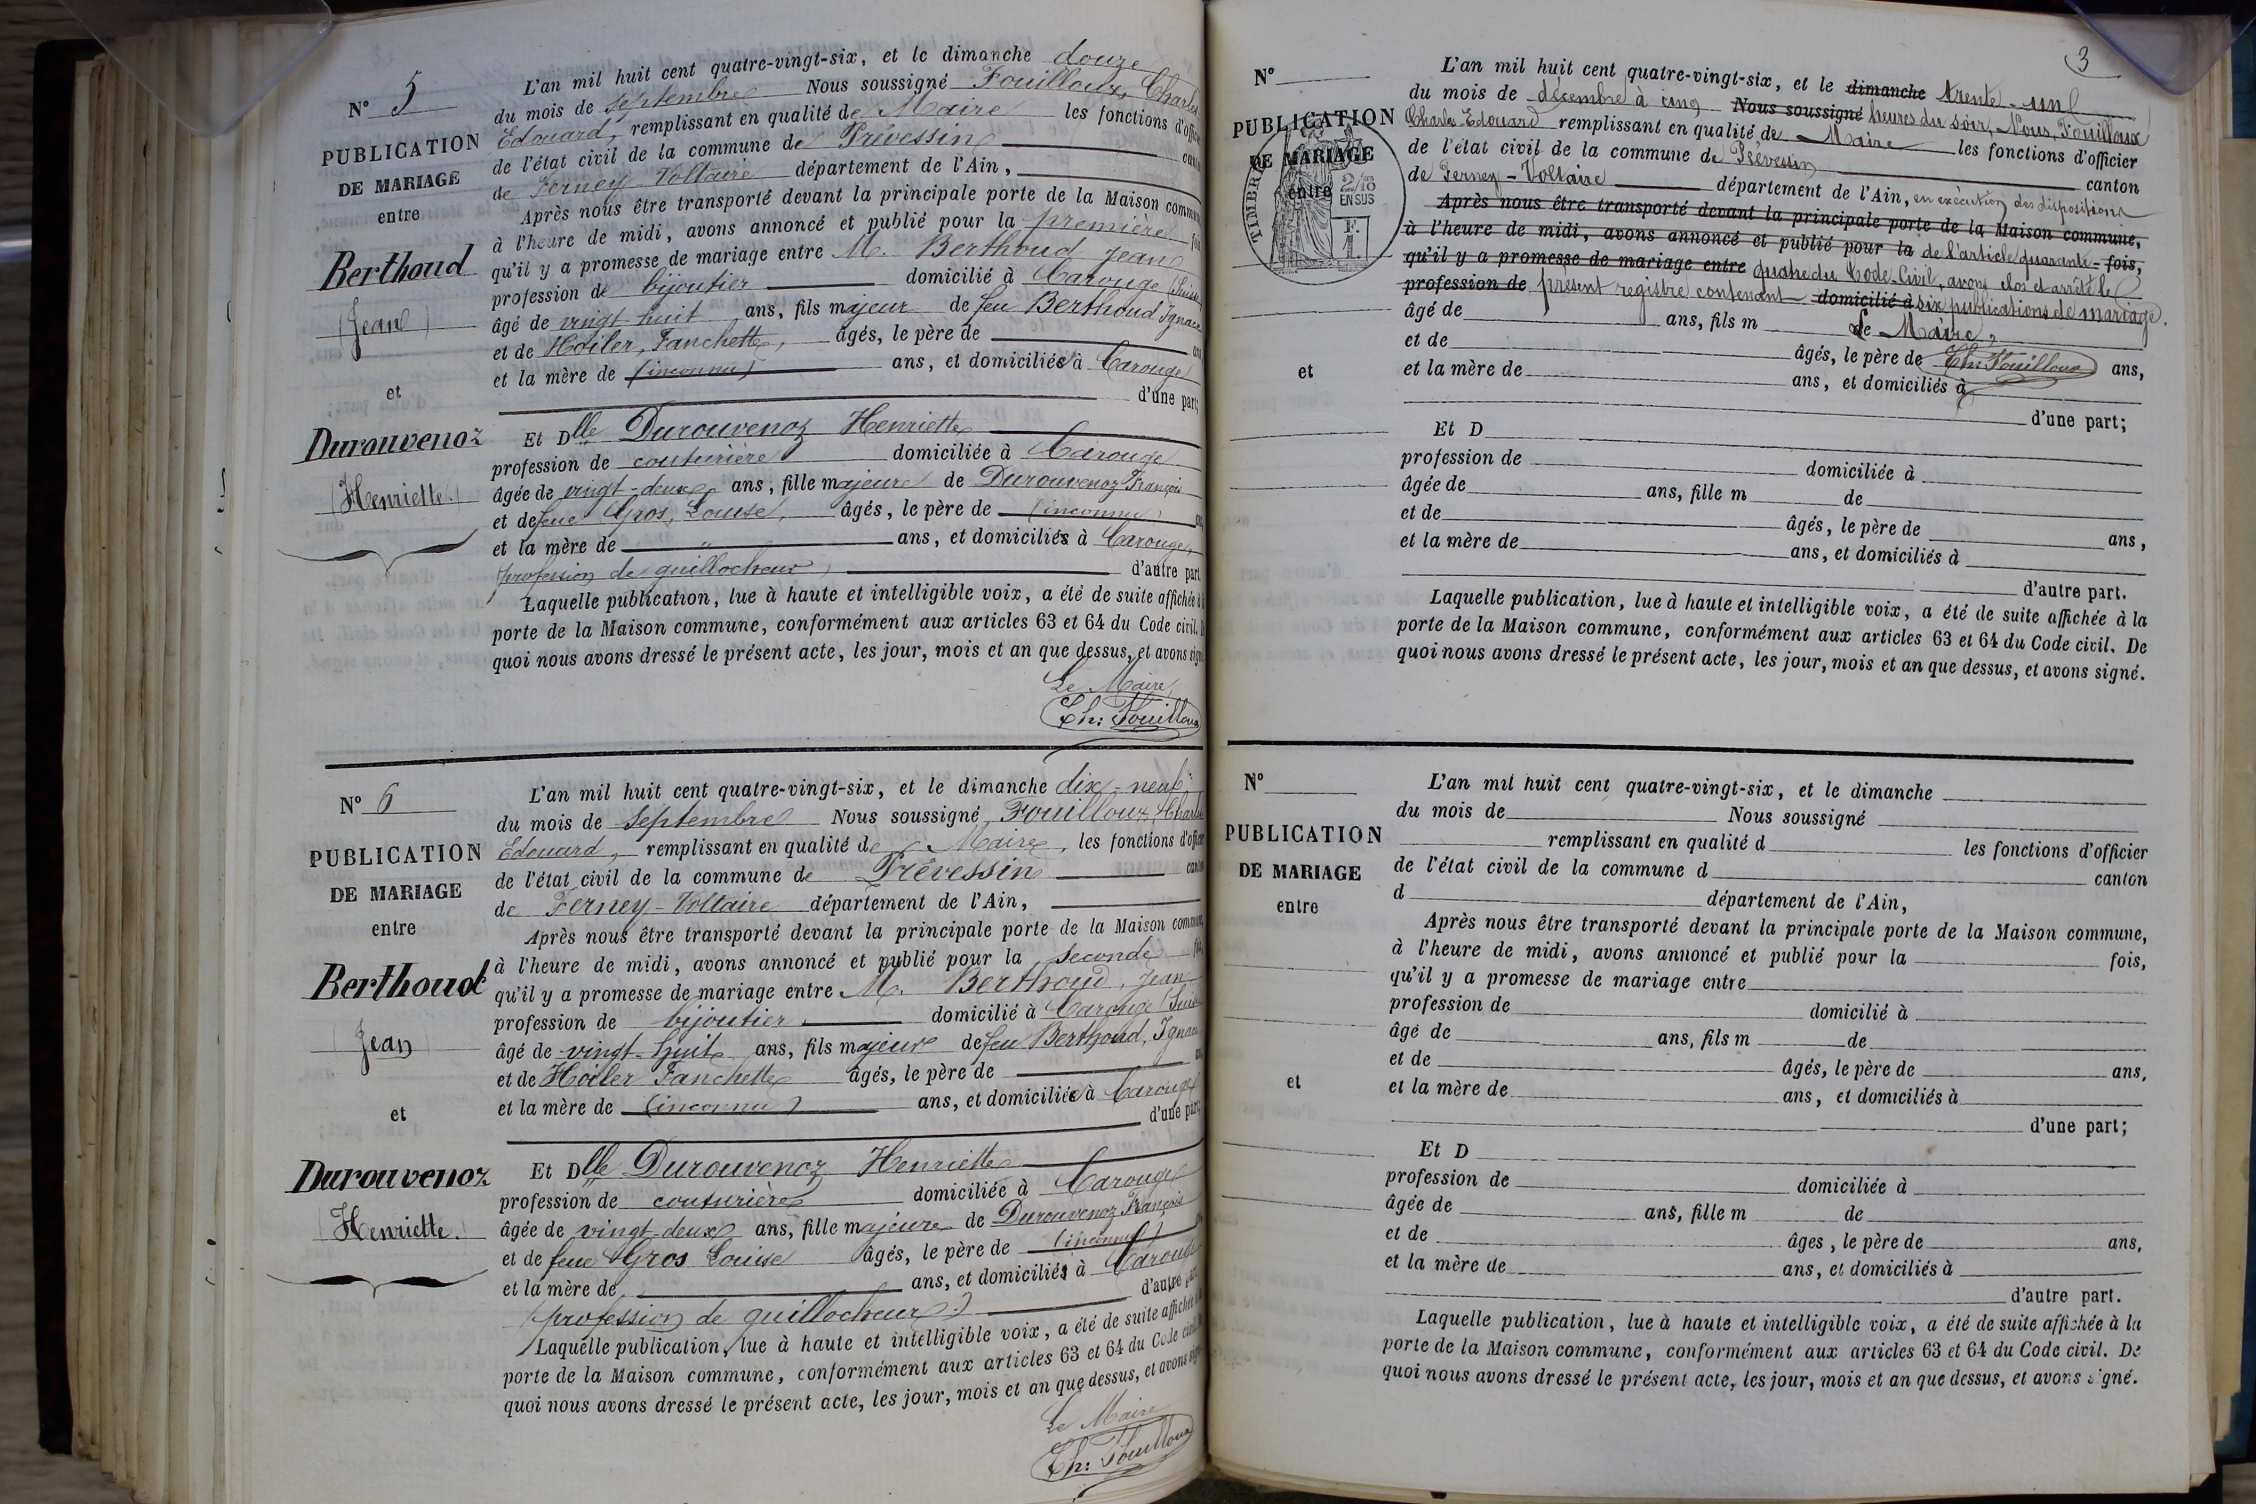 N° 5
PUBLICATION
DE MARIAGE
entre
Berthoud
(Jean)
et
Durouvenoz
(Henriette.)
L'an mil huit cent quatre-vingt-six, et le dimanche douze
du mois de septembre Nous soussigné Fouilloux, Charles
Edouard, remplissant en qualité de Maire les fonctions d'offic
de l'état civil de la commune de Prévessin canto
de Ferney-Voltaire département de l'Ain,
Après nous être transporté devant la principale porte de la Maison commun
à l'heure de midi, avons annoncé et publié pour la première foi
qu'il y a promesse de mariage entre M. Berthoud Jean
profession de bijoutier domicilié à Carouge (Suisse
âgé de vingt huit ans, fils majeur de feu Berthoud Ignace
et de Hoiler, Fanchette, âgés, le père de an
et la mère de (inconnu) ans, et domiciliés à Carouge
d'une part;
Et Dlle Durouvenoz Henriette
profession de couturière domiciliée à Carouge
âgée de vingt-deux ans, fille majeure de Durouvenoz François
et de feue Gros, Louise, âgés, le père de (inconnu) an
et la mère de " ans, et domiciliés à Carouge,
profession de guillocheur, d'autre part.
Laquelle publication, lue à haute et intelligible voix, a été de suite affichée à l
porte de la Maison commune, conformément aux articles 63 et 64 du Code civil. D
quoi nous avons dressé le présent acte, les jour, mois et an que dessus, et avons sign
Le Maire,
Ch: Fouilloux
N° 6
PUBLICATION
DE MARIAGE
entre
Berthoud
(Jean)
et
Durouvenoz
(Henriette.)
L'an mil huit cent quatre-vingt-six, et le dimanche dix-neuf
du mois de septembre Nous soussigné Fouilloux, Charles
Edouard, remplissant en qualité de Maire, les fonctions d'offic
de l'état civil de la commune de Prévessin canton
de Ferney-Voltaire département de l'Ain,
Après nous être transporté devant la principale porte de la Maison commun
à l'heure de midi, avons annoncé et publié pour la seconde foi
qu'il y a promesse de mariage entre M. Berthoud, Jean
profession de bijoutier, domicilié à Carouge (Suisse
âgé de vingt-huit ans, fils majeur de feu Berthoud, Ignace
et de Hoiler Fanchette âgés, le père de an
et la mère de (inconnu) ans, et domiciliés à Carouge
d'une part;
Et Dlle Durouvenoz Henriette
profession de couturière domiciliée à Carouge
âgée de vingt-deux ans, fille majeure de Durouvenoz François
et de feue Gros Louise âgés, le père de (inconnu)
et la mère de ans, et domiciliés à Carouge
(profession de guillocheur.) d'autre part.
Laquelle publication, lue à haute et intelligible voix, a été de suite affichée à
porte de la Maison commune, conformément aux articles 63 et 64 du Code civil.
quoi nous avons dressé le présent acte, les jour, mois et an que dessus, et avons sign
Le Maire
Ch: Fouilloux
3
N°
PUBLICATION
DE MARIAGE
entre
TIMBRE
2/10
EN SUS
F.
1
et
L'an mil huit cent quatre-vingt-six, et le dimanche trente-un
du mois de décembre à cinq Nous soussigné heures du soir, Nous, Fouilloux
Charles-Edouard remplissant en qualité de Maire les fonctions d'officier
de l'état civil de la commune de Prévessin canton
de Ferney-Voltaire département de l'Ain, en exécution des dispositions
Après nous être transporté devant la principale porte de la Maison commune,
à l'heure de midi, avons annoncé et publié pour la de l'article quarante- fois,
qu'il y a promesse de mariage entre quatre du Code Civil, avons clos et arrêté le
profession de présent registre contenant domicilié à six publications de mariage.
âgé de ans, fils m de Le Maire,
et de âgés, le père de Ch: Fouilloux ans,
et la mère de ans, et domiciliés à
d'une part;
Et D
profession de domiciliée à
âgée de ans, fille m de
et de âgés, le père de ans,
et la mère de ans, et domiciliés à
d'autre part.
Laquelle publication, lue à haute et intelligible voix, a été de suite affichée à la
porte de la Maison commune, conformément aux articles 63 et 64 du Code civil. De
quoi nous avons dressé le présent acte, les jour, mois et an que dessus, et avons signé.
N°
PUBLICATION
DE MARIAGE
entre
et
L'an mil huit cent quatre-vingt-six, et le dimanche
du mois de Nous soussigné
remplissant en qualité d les fonctions d'officier
de l'état civil de la commune d canton
d département de l'Ain,
Après nous être transporté devant la principale porte de la Maison commune,
à l'heure de midi, avons annoncé et publié pour la fois,
qu'il y a promesse de mariage entre
profession de domicilié à
âgé de ans, fils m de
et de âgés, le père de ans,
et la mère de ans, et domiciliés à
d'une part;
Et D
profession de domiciliée à
âgée de ans, fille m de
et de âges, le père de ans,
et la mère de ans, et domiciliés à
d'autre part.
Laquelle publication, lue à haute et intelligible voix, a été de suite affichée à la
porte de la Maison commune, conformément aux articles 63 et 64 du Code civil. De
quoi nous avons dressé le présent acte, les jour, mois et an que dessus, et avons signé.